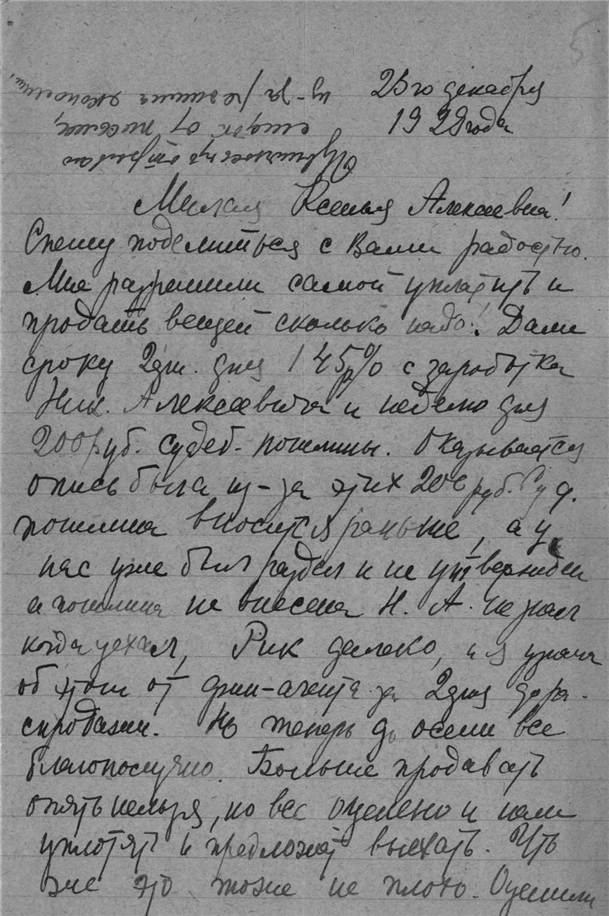 25го декабря
1928года
из-за режима экономии.
от письма,
отрываю
Милая Ксенья Алексеевна!
Спешу поделиться с Вами радостью.
Мне разрешили самой уплатить и
продать вещей сколько надо! Дали
сроку 2 дня 145% с заработка
Ник. Алексеевича и неделю для
200 руб. судеб. пошлины. Оказывается
опись была из-за этих 200 руб. Суд.
пошлина вносится раньше, а у
нас уже был раздел и не утвержден
и пошлина не внесена Н. А. не знал
когда уехал, Рик далеко, а я узнала
об этом от фин-агента за 2 дня до ра-
спродажи. Но теперь до осени все
благополучно. Больше продавать
опять нельзя, но все оценено и нам
уплотят и предложат выехать. Что
же это тоже не плохо. Оценили